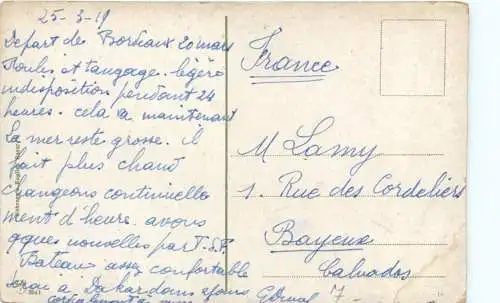 25-3-19
Départ de Bordeaux 20 mars
Roulis et tangage. légère
indisposition pendant 24
heures. cela va maintenant
La mer reste grosse. il
fait plus chaud
changeons continuelle
ment d'heure. avons
qques nouvelles par T.S.F.
Bateau assez confortable
à Dakar dans 2 jours
France
M Lamy
1. Rue des Cordeliers
Bayeux
Calvados